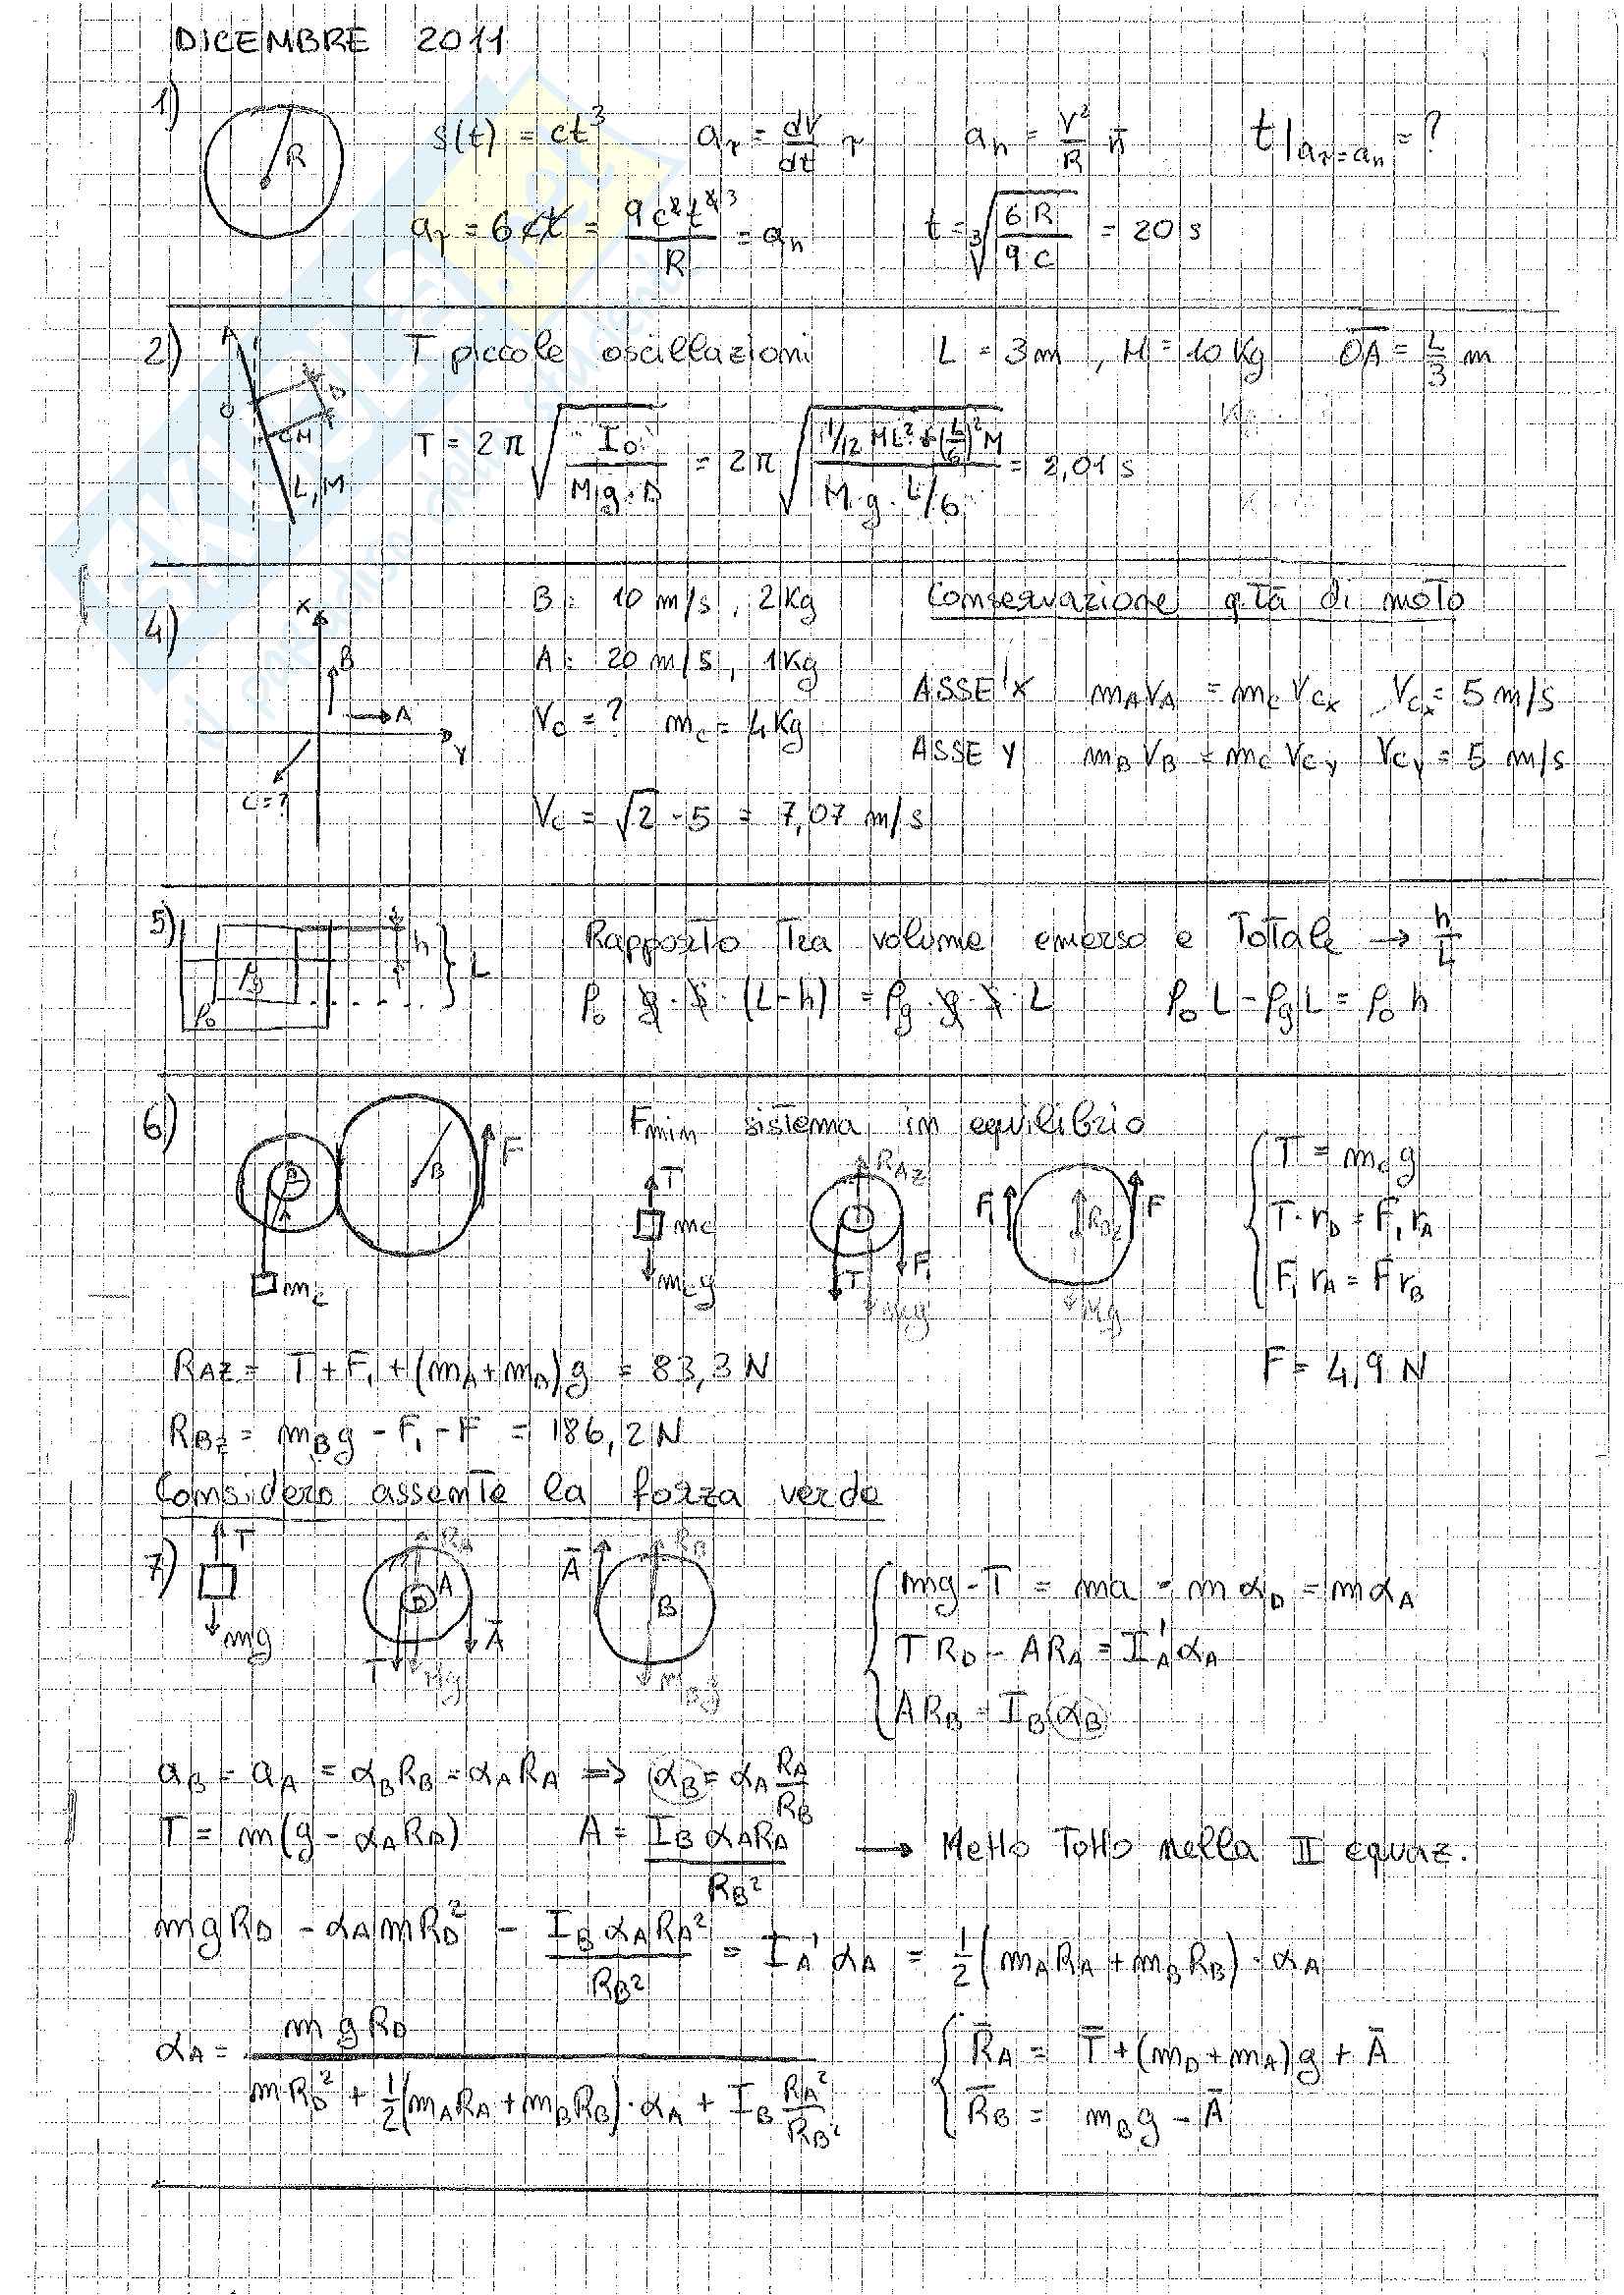 DICEMBRE 2011
1)
R
s(t) = ct³ aτ = dv/dt τ an = v²/R n t|aτ=an = ?
aτ = 6ct = 9c²t⁴³/R = an t = ³√(6R/9c) = 20 s
2) T piccole oscillazioni L = 3m, M = 10 Kg OA = L/3 m
A
O
D
CM
L, M
T = 2π √(Io/(M g · D)) = 2π √((1/12 ML² + (L/6)² M)/(M · g · L/6)) = 2,01 s
4) X B: 10 m/s, 2Kg Conservazione q.tà di moto
B A: 20 m/s, 1Kg
A ASSE X mA vA = mC vCx vCx = 5 m/s
Vc = ? mc = 4Kg
Y ASSE Y mB vB = mC vCy vCy = 5 m/s
C=?
Vc = √2 · 5 = 7,07 m/s
5) h L Rapporto tra volume emerso e totale → h/L
ρg
ρ0
ρ0 · g · s · (L-h) = ρg · g · s · L ρ0 L - ρg L = ρ0 h
6) Fmin sistema in equilibrio
D A B F mc
T mc mcg
RAZ T F1 Mg
F1 RBZ F Mg
T = mcg
T · rD = F1 rA
F1 rA = F rB
RAZ = T + F1 + (mA + mD)g = 83,3 N F = 4,9 N
RBZ = mBg - F1 - F = 186,2 N
Considero assente la forza verde
7) T mg
RA A D T Mg A
A RB B MBg
mg - T = ma = m αD = m αA
T RD - A RA = I'A αA
A RB = IB αB
aB = aA = αB RB = αA RA ⇒ αB = αA RA/RB
T = m(g - αA RD) A = IB αA RA/RB² → Metto tutto nella II equaz.
mg RD - αA m RD² - IB αA RA²/RB² = I'A αA = 1/2 (mA RA + mB RB) · αA
αA = m g RD/(m RD² + 1/2 (mA RA + mB RB) · αA + IB RA²/RB²)
RA = T + (mD + mA)g + A
RB = mBg - A